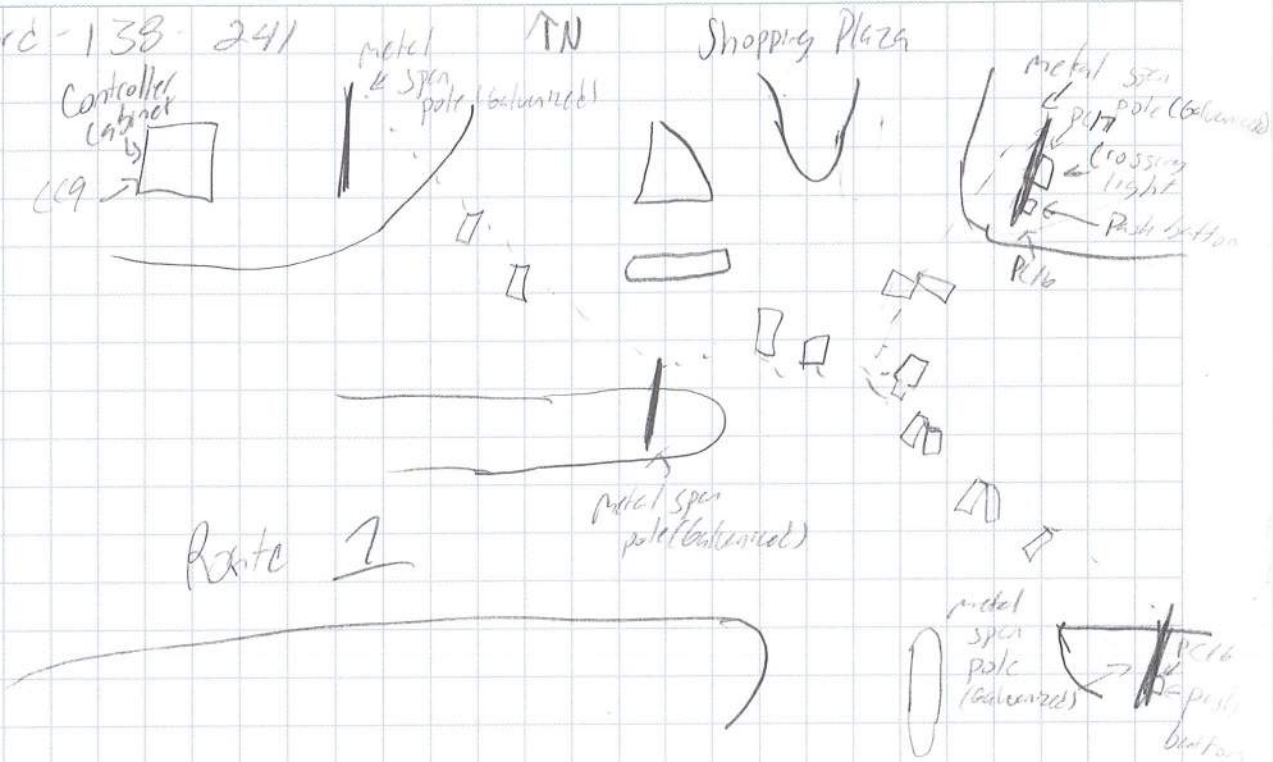 rd-138-241
↑N
Shopping Plaza
Controller
Cabinet
CC9
metal
span
pole (Galvanized)
metal span
pole (Galvanized)
Crossing
light
Push button
PC16
metal span
pole (Galvanized)
Route 1
metal
span
pole
(Galvanized)
PC16
push
button